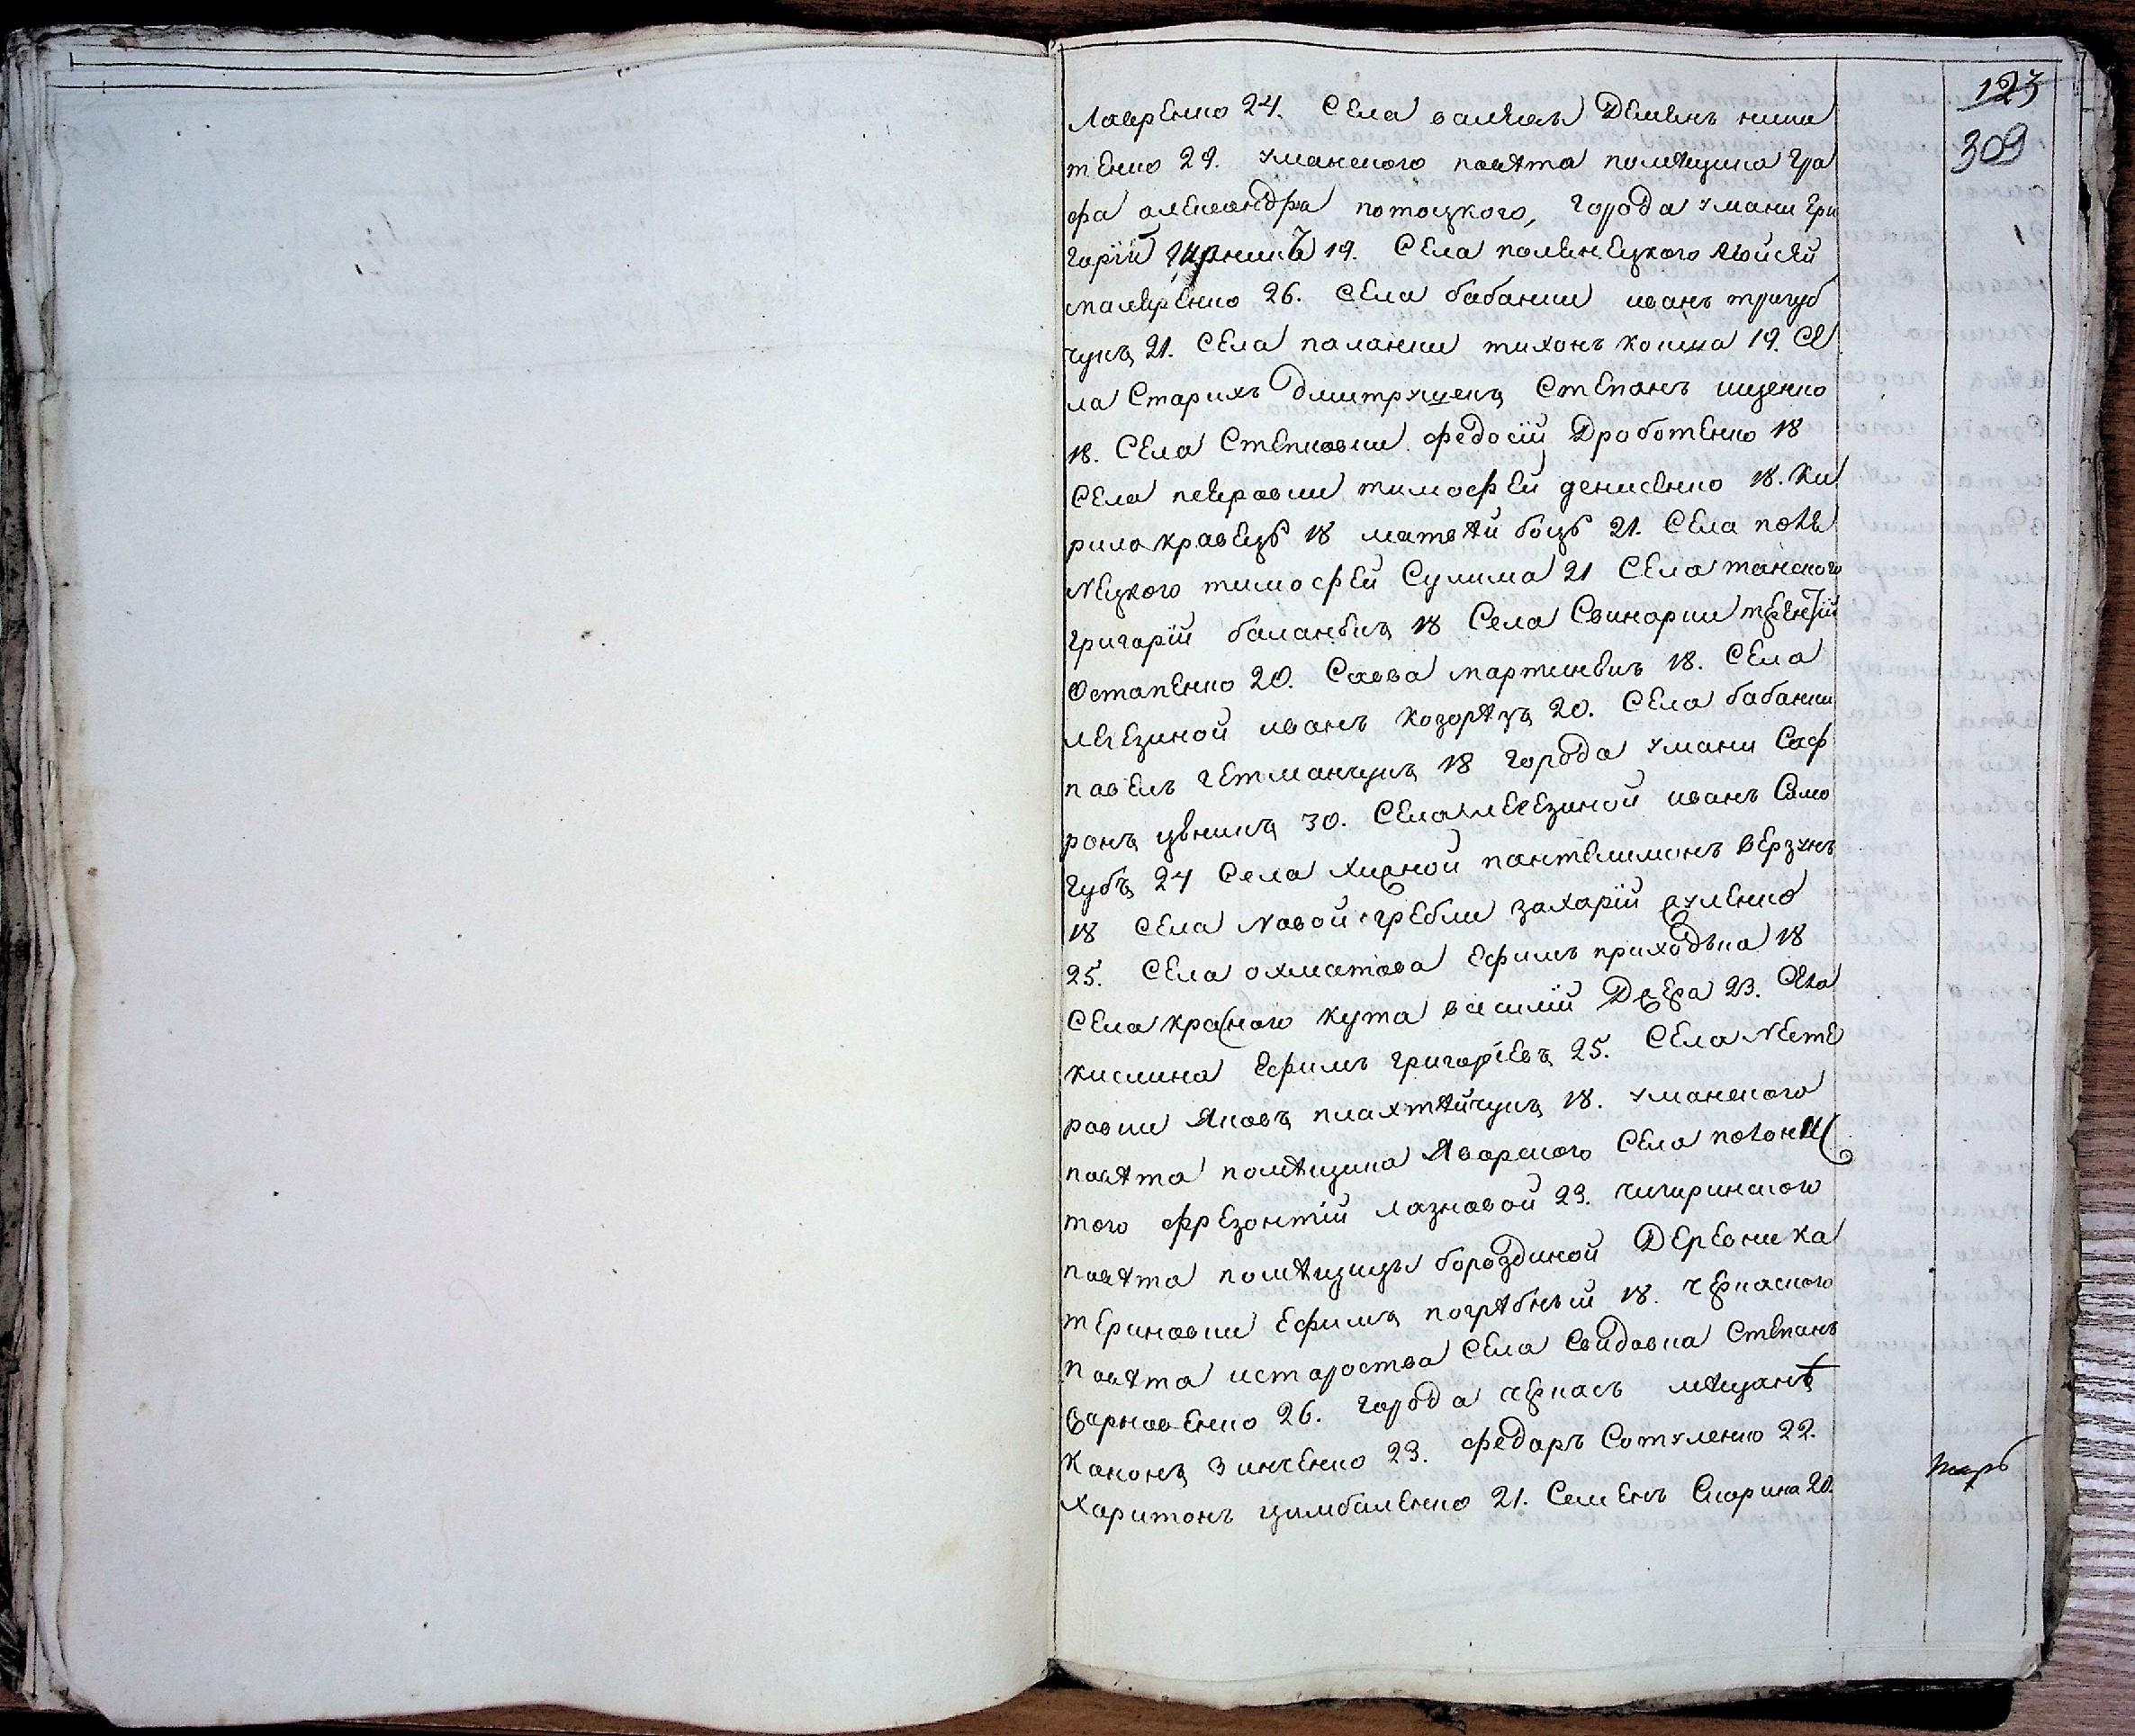 123
309
Лавренко 24. Села Деменъ ники
тенко 29. Уманского повѣта помѣщика гра
фа александра потоцкого, города Умани гри
горій 19. Села поленецкого Моисѣй
26. Села бабанки иванъ тригуб
чукъ 21. Села паланки тихонъ кошка 19. Се
ла Старихъ Дмитрушекъ Степанъ ищенко
18. Села Степковки федосій Дроботенко 18
Села певаровки тимофей денисенко 18. Ки
рило кравецъ 18 матвѣй боцъ 21. Села поле
нецкого тимофей Сулима 21 Села танского
григорій баланбикъ 18 Села Свинарки терентій
Остапенко 20. Савва мартиневичъ 18. Села
легезиной иванъ козорѣзъ 20. Села бабанки
павелъ гетманчукъ 18 города Умани Саф
ронъ цвникъ 30. Села легезиной иванъ Само
губъ 24 Села Хижной пантелимонъ верзунъ
18 Села Новой гребли захарій Зуленко
25. Села охматова Ефимъ приходька 18
Села красного кута василій Дзера 23. Села
кислина Ефимъ григоріевъ 25. Села Несте
ровки Яковъ плахтѣйчукъ 18. Уманского
повѣта помѣщика Яворского Села полонис
того фрезонтій лазновой 23. чигиринского
повѣта помѣщицы бороздиной Деревни Ка
териновки Ефимъ погрѣбный 18. черкаского
повѣта истароства Села Свидовка Степанъ
26. города черкасъ мѣщанъ
Канонъ Зинченко 23. федоръ Сотуленко 22.
Харитонъ цимбаленко 21. Семенъ Скорика 20.